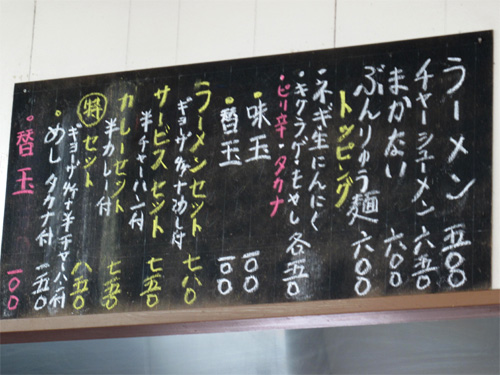 ラーメン 五〇〇
チャーシューメン 六五〇
まかない 六〇〇
ぶんりゅう麺 六〇〇
トッピング
・ネギ・生にんにく
・キクラゲ・もやし 各五〇
・ピリ辛・タカナ
・味玉 一〇〇
・替玉 一〇〇
ラーメンセット 七八〇
ギョーザ付めし付
サービスセット 七五〇
半チャーハン付
カレーセット 七五〇
半カレー付
特セット 八五〇
ギョーザ付半チャーハン付
・めし タカナ付 一五〇
・替玉 一〇〇